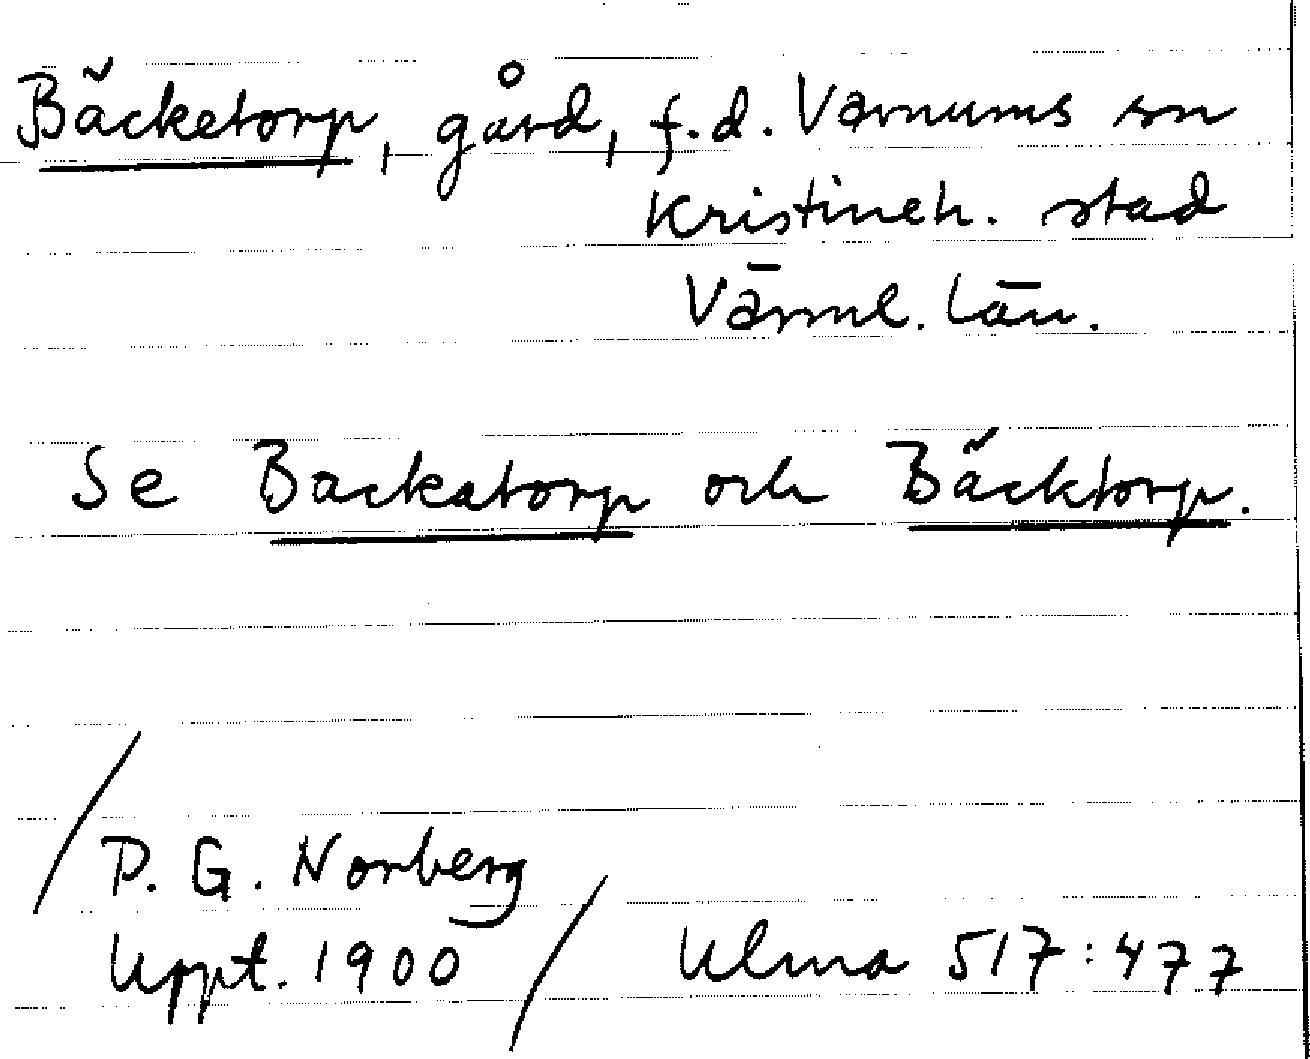 Bäcketorp, gård, f.d. Varnums sn
Kristineh. stad
Värml. län.
Se Backatorp och Bäcktorp.
P. G. Norberg
Uppt. 1900 / Ulma 517:477